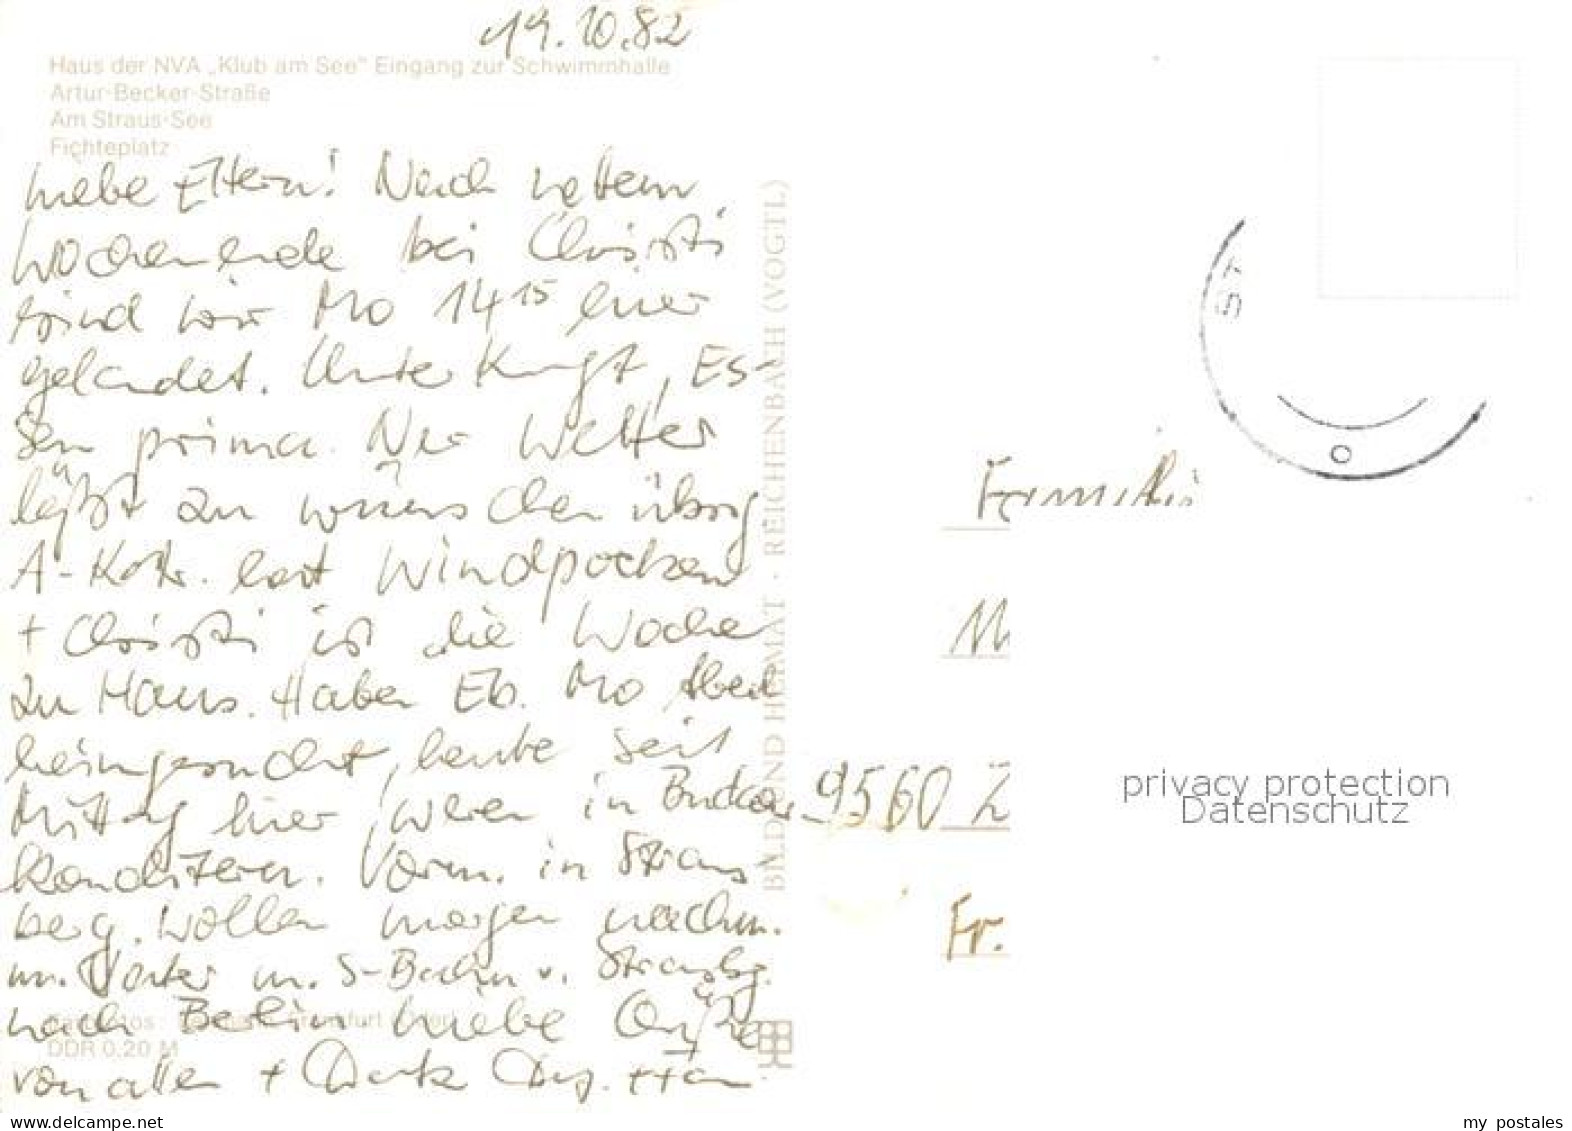 19.10.82
Haus der NVA „Klub am See" Eingang zur Schwimmhalle
Artur-Becker-Straße
Am Straus-See
Fichteplatz
Liebe Eltern! Nach nettem
Wochenende bei Christi
sind wir Mo 14 15 hier
gelandet. Unterkunft, Es-
sen prima. Nur Wetter
läßt zu wünschen übrig
A-Katr. hat Windpocken
+ Christi ist die Woche
zu Haus. Haben Eb. Mo Abend
heimgesucht, heute seit
Mittag hier, waren in Buckow
Konditern. Vorm. in Straus-
berg. Wollen morgen nachm.
m. Vater m. S-Bahn v. Strausbg.
nach Berlin Liebe Grüße
von allen +
BILD UND HEIMAT · REICHENBACH (VOGTL)
Frankfurt
DDR 0,20 M
Familie
M
9560 Z
Fr.
privacy protection
Datenschutz
my postales